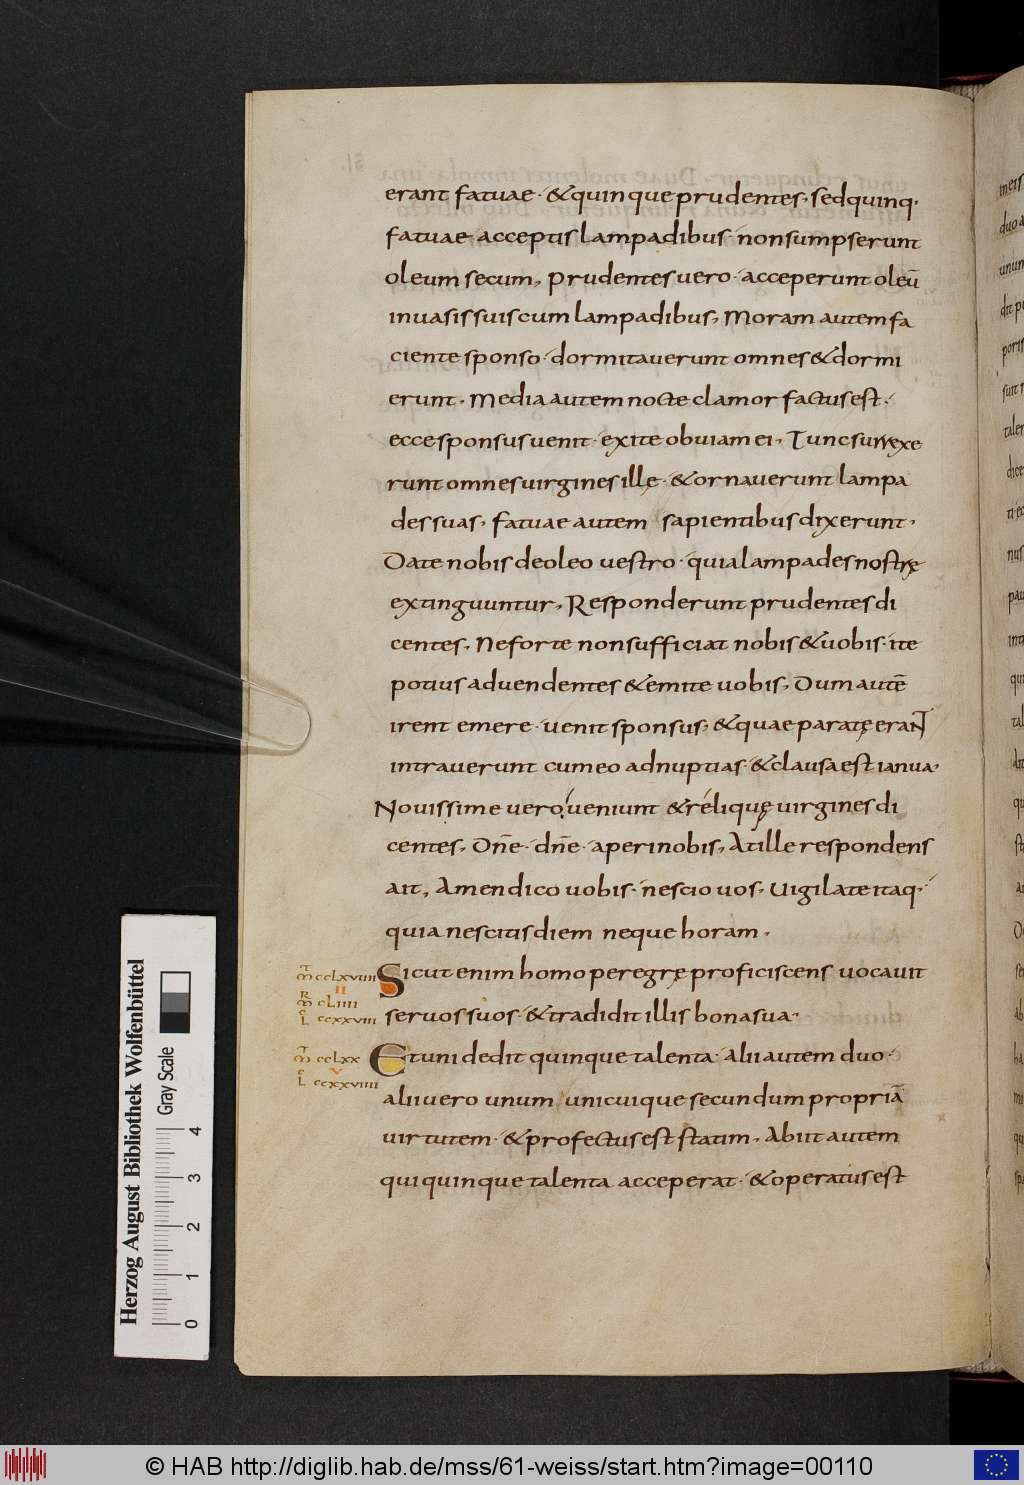 erant fatuae · & quinque prudentes · sed quinq·
fatuae acceptis lampadibus · non sumpserunt
oleum secum, prudentes uero · acceperunt oleū
in uasis suis cum lampadibus, Moram autem fa
ciente sponso · dormitauerunt omnes & dormi
erunt · Media autem nocte clamor factus est ·
ecce sponsus uenit · exite obuiam ei, Tunc surrexe
runt omnes uirgines illę · & ornauerunt lampa
des suas, fatuae autem sapientibus dixerunt,
Date nobis de oleo uestro · quia lampades nostrę
extinguuntur, Responderunt prudentes di
centes, Ne forte non sufficiat nobis & uobis · ite
potius ad uendentes & emite uobis, Dum autē
irent emere · uenit sponsus, & quae paratę erant
intrauerunt cum eo ad nuptias · & clausa est ianua,
Nouissime uero ueniunt & reliquę uirgines di
centes, Dn̄e · dn̄e · aperi nobis, At ille respondens
ait, Amen dico uobis · nescio uos, Uigilate itaq·
quia nescitis diem neque horam ·
T
M CCLXVIIII
II
R
M CLIIII
C
L CCXXVIII
Sicut enim homo peregrę proficiscens uocauit
seruos suos · & tradidit illis bona sua,
T
M CCLXX
V
C
L CCXXVIIII
Et uni dedit quinque talenta · alii autem duo ·
alii uero unum unicuique secundum propriā
uirtutem · & profectus est statim, Abiit autem
qui quinque talenta acceperat · & operatus est
Herzog August Bibliothek Wolfenbüttel
Gray Scale
0 1 2 3 4
© HAB http://diglib.hab.de/mss/61-weiss/start.htm?image=00110